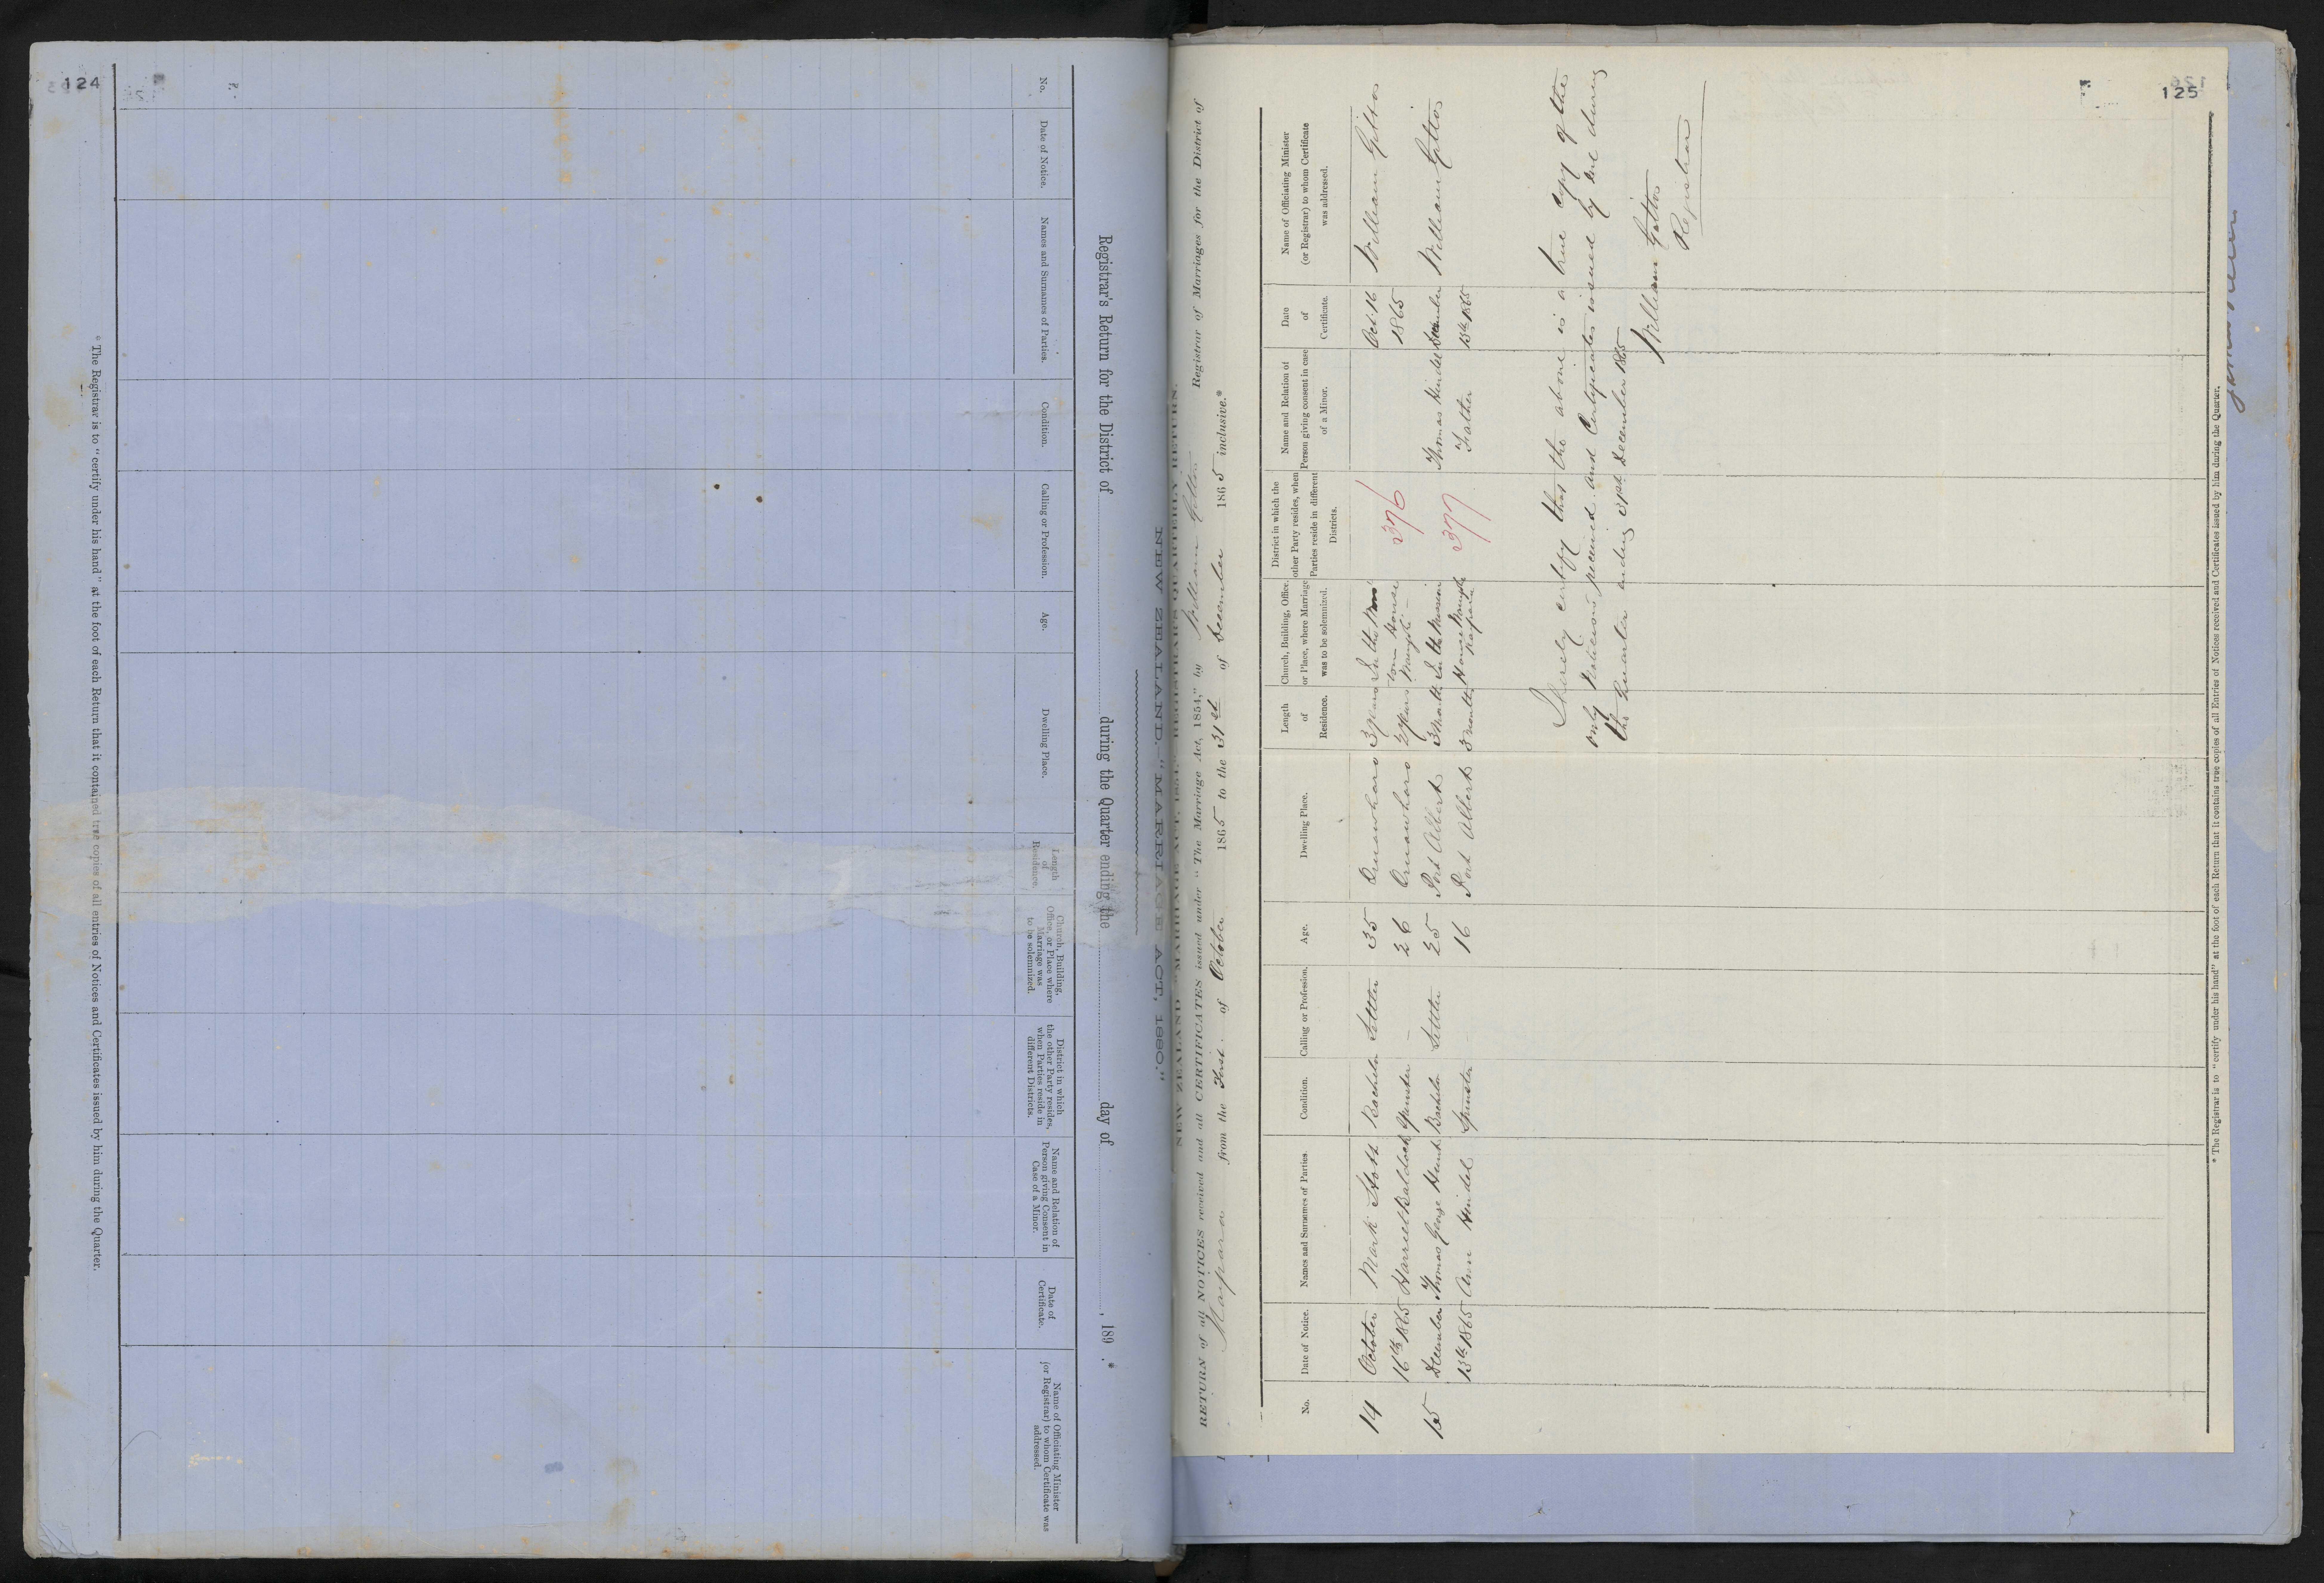 124
Registrar's Return for the District of during the Quarter ending the day of , 189 .*
No.
Date of Notice.
Names and Surnames of Parties.
Condition.
Calling or Profession.
Age.
Dwelling Place.
Length of Residence.
Church, Building, Office, or Place where Marriage was to be solemnized.
District in which the other Party resides, when Parties reside in different Districts.
Name and Relation of Person giving Consent in Case of a Minor.
Date of Certificate.
Name of Officiating Minister (or Registrar) to whom Certificate was addressed.
* The Registrar is to "certify under his hand" at the foot of each Return that it contained true copies of all entries of Notices and Certificates issued by him during the Quarter.
NEW ZEALAND. "MARRIAGE ACT, 1880."
125
RETURN of all NOTICES received and all CERTIFICATES issued under "The Marriage Act, 1854," by William Gittos Registrar of Marriages for the District of
from the First of October 1865 to the 31st of December 1865 inclusive.*
No.
Date of Notice.
Names and Surnames of Parties.
Condition.
Calling or Profession.
Age.
Dwelling Place.
Length of Residence.
Church, Building, Office, or Place, where Marriage was to be solemnized.
District in which the other Party resides, when Parties reside in different Districts.
Name and Relation of Person giving consent in case of a Minor.
Date of Certificate.
Name of Officiating Minister (or Registrar) to whom Certificate was addressed.
14 October Mark Stott Bachelor Settler 35 Oruawharo 3 years In the 376 Oct 16 William Gittos
16th 1865 Harriet Baldock Spinster - 26 Oruawharo 2 years House 1865
15 December Thomas George Hunt Bachelor Settler 25 Port Albert 3 Months In the Mission 377 Thomas Hindel December William Gittos
13th 1865 Ann Hindel Spinster 16 Port Albert 3 months House Kaipara Father 13th 1865
I herely certify that the above is a true copy of the
only Notices received and Certificates issued by me during
the Quarter ending 31st December 1865
William Gittos
Registrar
* The Registrar is to "certify under his hand" at the foot of each Return that it contains true copies of all Entries of Notices received and Certificates issued by him during the Quarter.